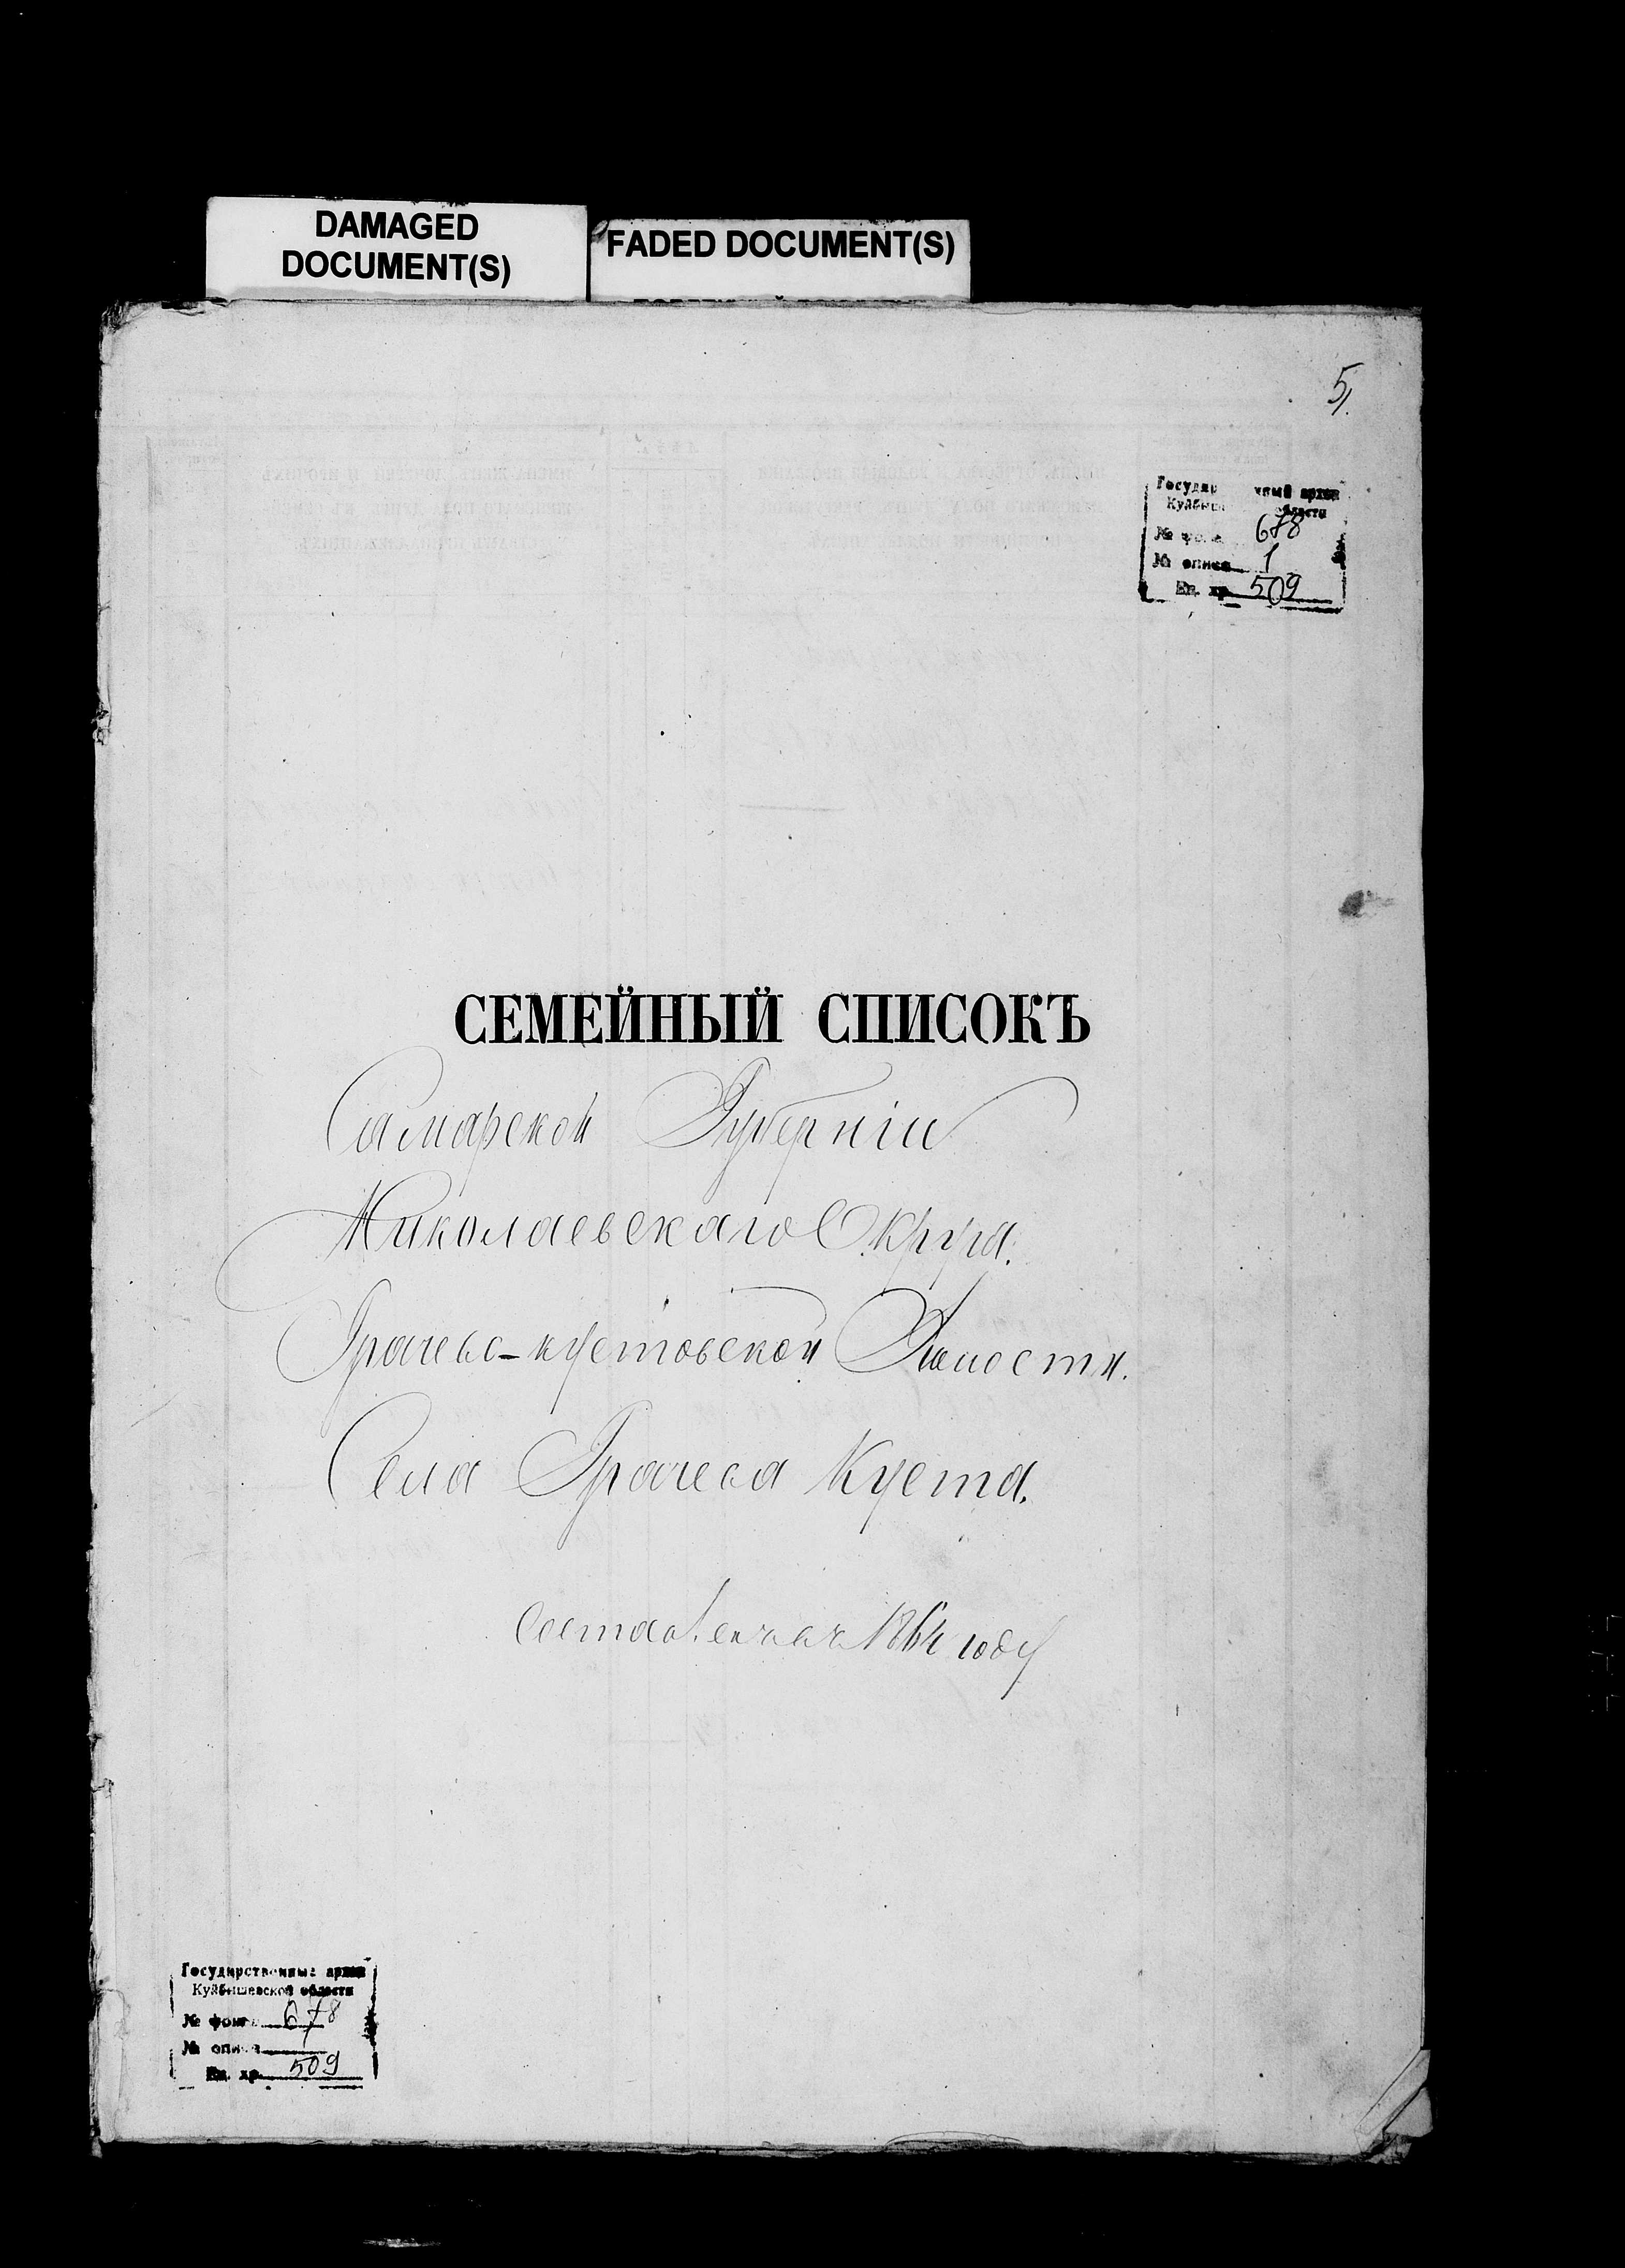 DAMAGED
DOCUMENT(S)
FADED DOCUMENT(S)
5
Государ ный архив
Куйбыш области
№ фон 678
№ описи 1
Ед. хр. 509
СЕМЕЙНЫЙ СПИСОКЪ
Самарской Губерніи
Николаевскаго Округа.
Грачево-кустовской Волости.
Села Грачева Куста.
1864 году
Государственный архив
Куйбышевской области
№ фонда 678
№ описи 1
Ед. хр. 509